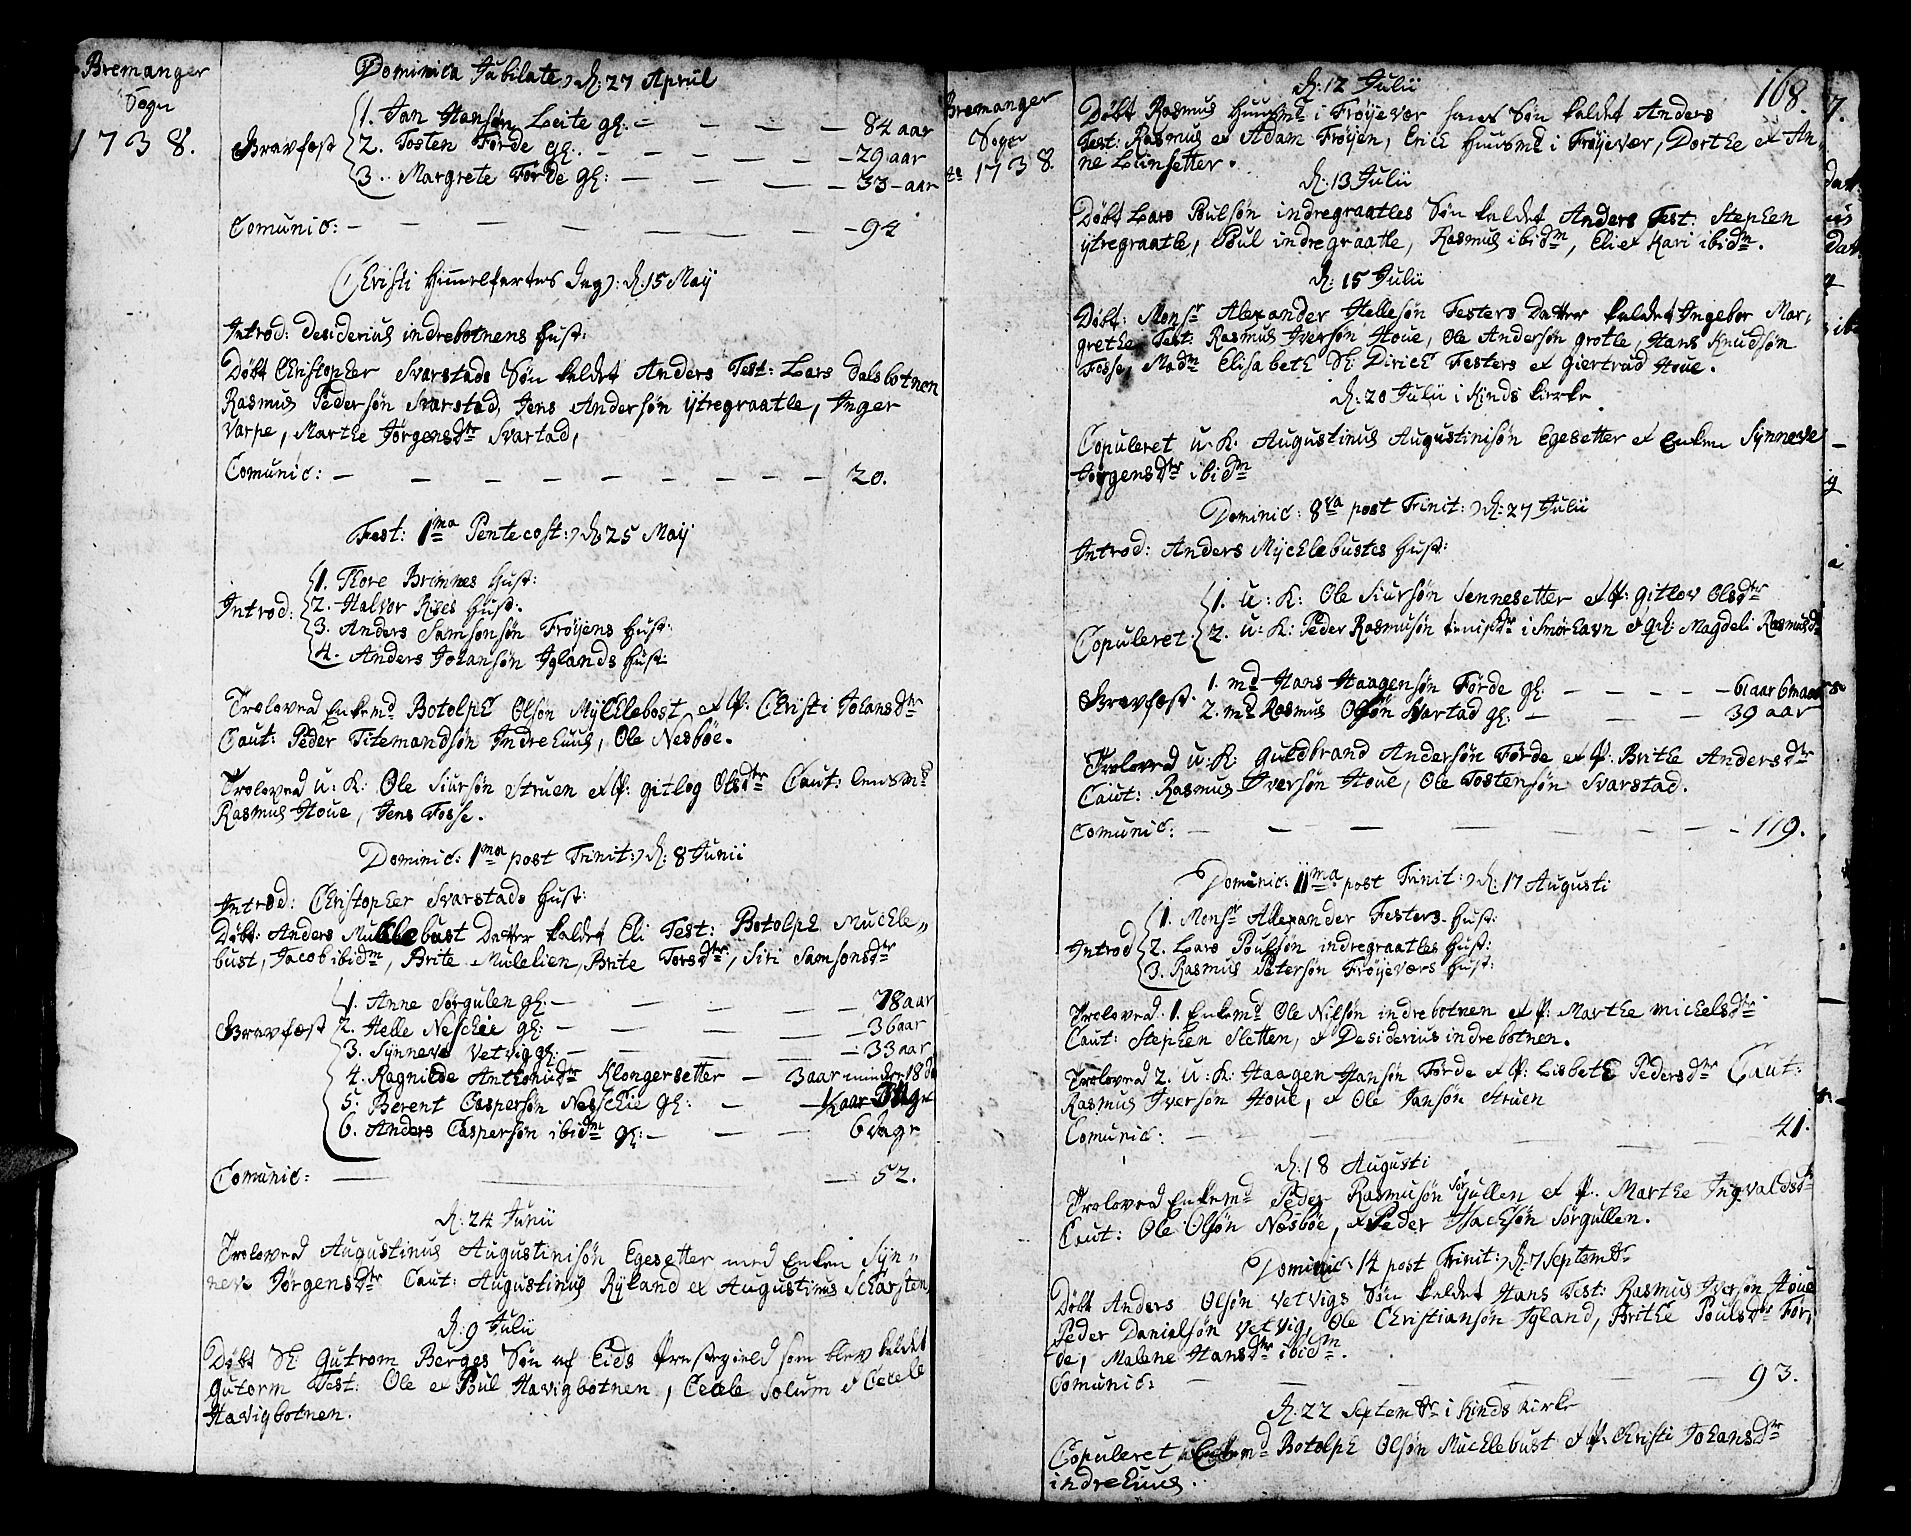 Bremanger
Sogn
1738.
Dominica Jubilate, d: 27 April
Gravfæst
1. Jan Hansøn Leite gl: — — — — 84 aar
2. Tosten Førde gl: — — — — 29 aar
3. Margrete Førde gl: — — — — 33 aar
Comunic: — — — — — — 94
Christi Himmelfartes Dag, d: 15 Maij
Introd: Desiderius indrebotnens Hust:
Døbt Christopher Svarstads Søn kaldet Anders Test: Lars Dalsbotnen
Rasmus Pedersøn Svarstad, Jens Andersøn ytregraatle, Inger
Varpe, Marthe Jørgensdtr Svartad,
Comunic: — — — — — — — 20.
Fest: 1ma Pentecost:, d: 25 Maij
Introd:
1. Thore Brimnes Hust:
2. Halvor Rises Hust.
3. Anders Samsonsøn Frøyens Hust:
4. Anders Johansøn Iglands Hust:
Troloved Enkemd Botolph Olsøn Mychlebost, et P: Christi Johansdtr
Caut: Peder Titemandsøn Indrehuus, Ole Nesbøe.
Troloved u: K: Ole Siursøn Struen et P: Gitlog Olsdtr Caut: Lensmd
Rasmus Hove, Jens Fosse.
Dominic: 1ma post Trinit:, d: 8 Junii
Introd: Christopher Svarstads Hust:
Døbt: Anders Muchlebust Datter kaldet Eli Test: Botolph Muchle-
bust, Jacob ibidm, Brite Mulelien, Brite Torsdtr, Siri Samsonsdtr
Gravfæst
1. Anne Sørgulen gl: — — — — 78 aar
2. Helle Neschie gl: — — — — 36 aar
3. Synneve Vetvig gl: — — — — 33 aar
4. Ragnilde Anthonidtr Klongersetter — 3 aar minder 18 da
5. Berent Caspersøn Neschie gl: — — ½ aar Dage
6. Anders Caspersøn ibidm gl: — — — 6 Dage
Comunic: — — 52.
d: 24 Junii
Troloved Augustinus Augustinisøn Egesetter med Enken Syn-
neve Jørgensdtr Caut: Augustinus Ryland et Augustinus Scharsten
d: 9 Julii
Døbt Sl: Gutrom Berges Søn af Eids Præstegield som blev kaldet
Gutorm Test: Ole et Poul Havigbotnen, Cecele Solum et Cecele
Havigbotnen.
Bremanger
Sogn
Ao 1738.
168.
d: 12 Julii
Døbt Rasmus Huusmd i Frøyevær hans Søn kaldet Anders
Test: Rasmus et Adam Frøyen, Erich Huusmd i Frøyevær, Dorthe et An-
ne Lunsetter.
d: 13 Julii
Døbt Lars Poulsøn indregraatles Søn kaldet Anders Test: Stephen
ytregraatle, Poul indregraatle, Rasmus ibidm, Eli et Kari ibidm.
d: 15 Julii
Døbt: Monsr Alexander Hellesøn Festers Datter kaldet Ingebor Mar-
grethe Test: Rasmus Iversøn Hove, Ole Andersøn Grotle, Hans Knudsøn
Fosse, Madm Elisabeth Sl: Dirich Festers et Giertrud Hove.
d: 20 Julii i Kinds kirke
Copuleret u: K: Augustinus Augustinisøn Egesetter et Enken Synneve
Jørgensdtr ibidm
Dominic: 8va post Trinit:, d: 27 Julii
Introd: Anders Mychlebustes Hust:
Copuleret.
1. u: K: Ole Siursøn Sennesetter et P: Gitlov Olsdtr
2. u: K: Peder Rasmusøn i Smørhavn et Magdeli Rasmusdtr
Gravfæst.
1. md Hans Haagensøn Førde gl: — — — 61 aar 6 maan
2. md Rasmus Olsøn Svartad gl: — — 39 aar
Troloved u: K: Guldbrand Andersøn Førde et P: Brithe Andersdtr
Caut: Rasmus Iversøn Hove, Ole Tostensøn Svarstad.
Comunic: — — — — — — — 119.
Dominic: 11ma post Trinit:, d: 17 Augusti
Introd
1. Monsr Allexander Festers Hust:
2. Lars Poulsøn indregraatles Hust:
3. Rasmus Petersøn Frøyeværs Hust:
Troloved 1. Enkemd Ole Nilsøn indrebotnen et P: Marthe Michelsdtr
Caut: Stephen Sletten, et Desiderius indrebotnen.
Troloved 2. u: K: Haagen Hansøn Førde et P: Lisbeth Pedersdtr Caut:
Rasmus Iversøn Hove, et Ole Jansøn Struen
Comunic: — — — — 41.
d: 18 Augusti
Troloved Enkemd Peder Rasmusøn Sørgullen et P. Marthe Ingvaldsdtr
Caut: Ole Olsøn Nesbøe, et Peder Isachsøn Sørgullen.
Dominic: 14 post Trinit:, d: 7 Septembr
Døbt Anders Olsøn Vetvigs Søn kaldet Hans Test: Rasmus Iversøn Hove
Peder Danielsøn Vetvig, Ole Christiansøn Igland, Brithe Poulsdtr Før-
de, Malene Hansdtr ibidm.
Comunic: — — — — — — 93.
d: 22 Septembr i Kinds Kirke
Copuleret Enkemd Botolph Olsøn Muchlebust et P: Christi Johansdtr
indrehuus.